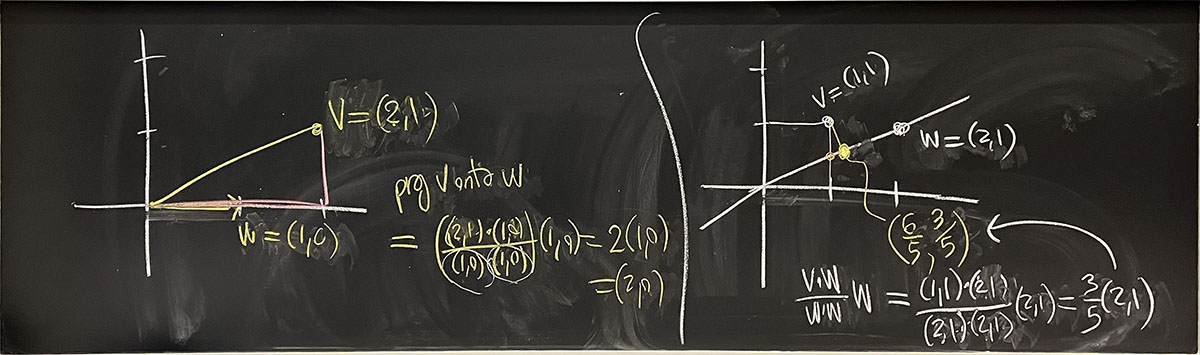 V=(2,1)
W=(1,0)
proj V onto W
= ((2,1)·(1,0)/(1,0)·(1,0))(1,0)=2(1,0)
=(2,0)
V=(1,1)
W=(2,1)
(6/5, 3/5)
V·W/W·W W = (1,1)·(2,1)/(2,1)·(2,1) (2,1)=3/5(2,1)